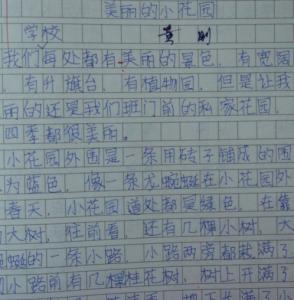 美丽的小花园
学校 黄刚
我们每处都有美丽的景色，有宽阔
，有升旗台，有植物园，但是让我
丽的还是我们班门前的私家花园，
四季都很美丽。
小花园外围是一条用砖子铺成的围
为蓝色，像一条龙蜿蜒在小花园外
春天，小花园道处都是绿色，在靠
大树，往前看，还有几棵小树，大
蜿蜒的一条小路，小路两旁都栽满了
小路前有几棵桂花树，树上开满了